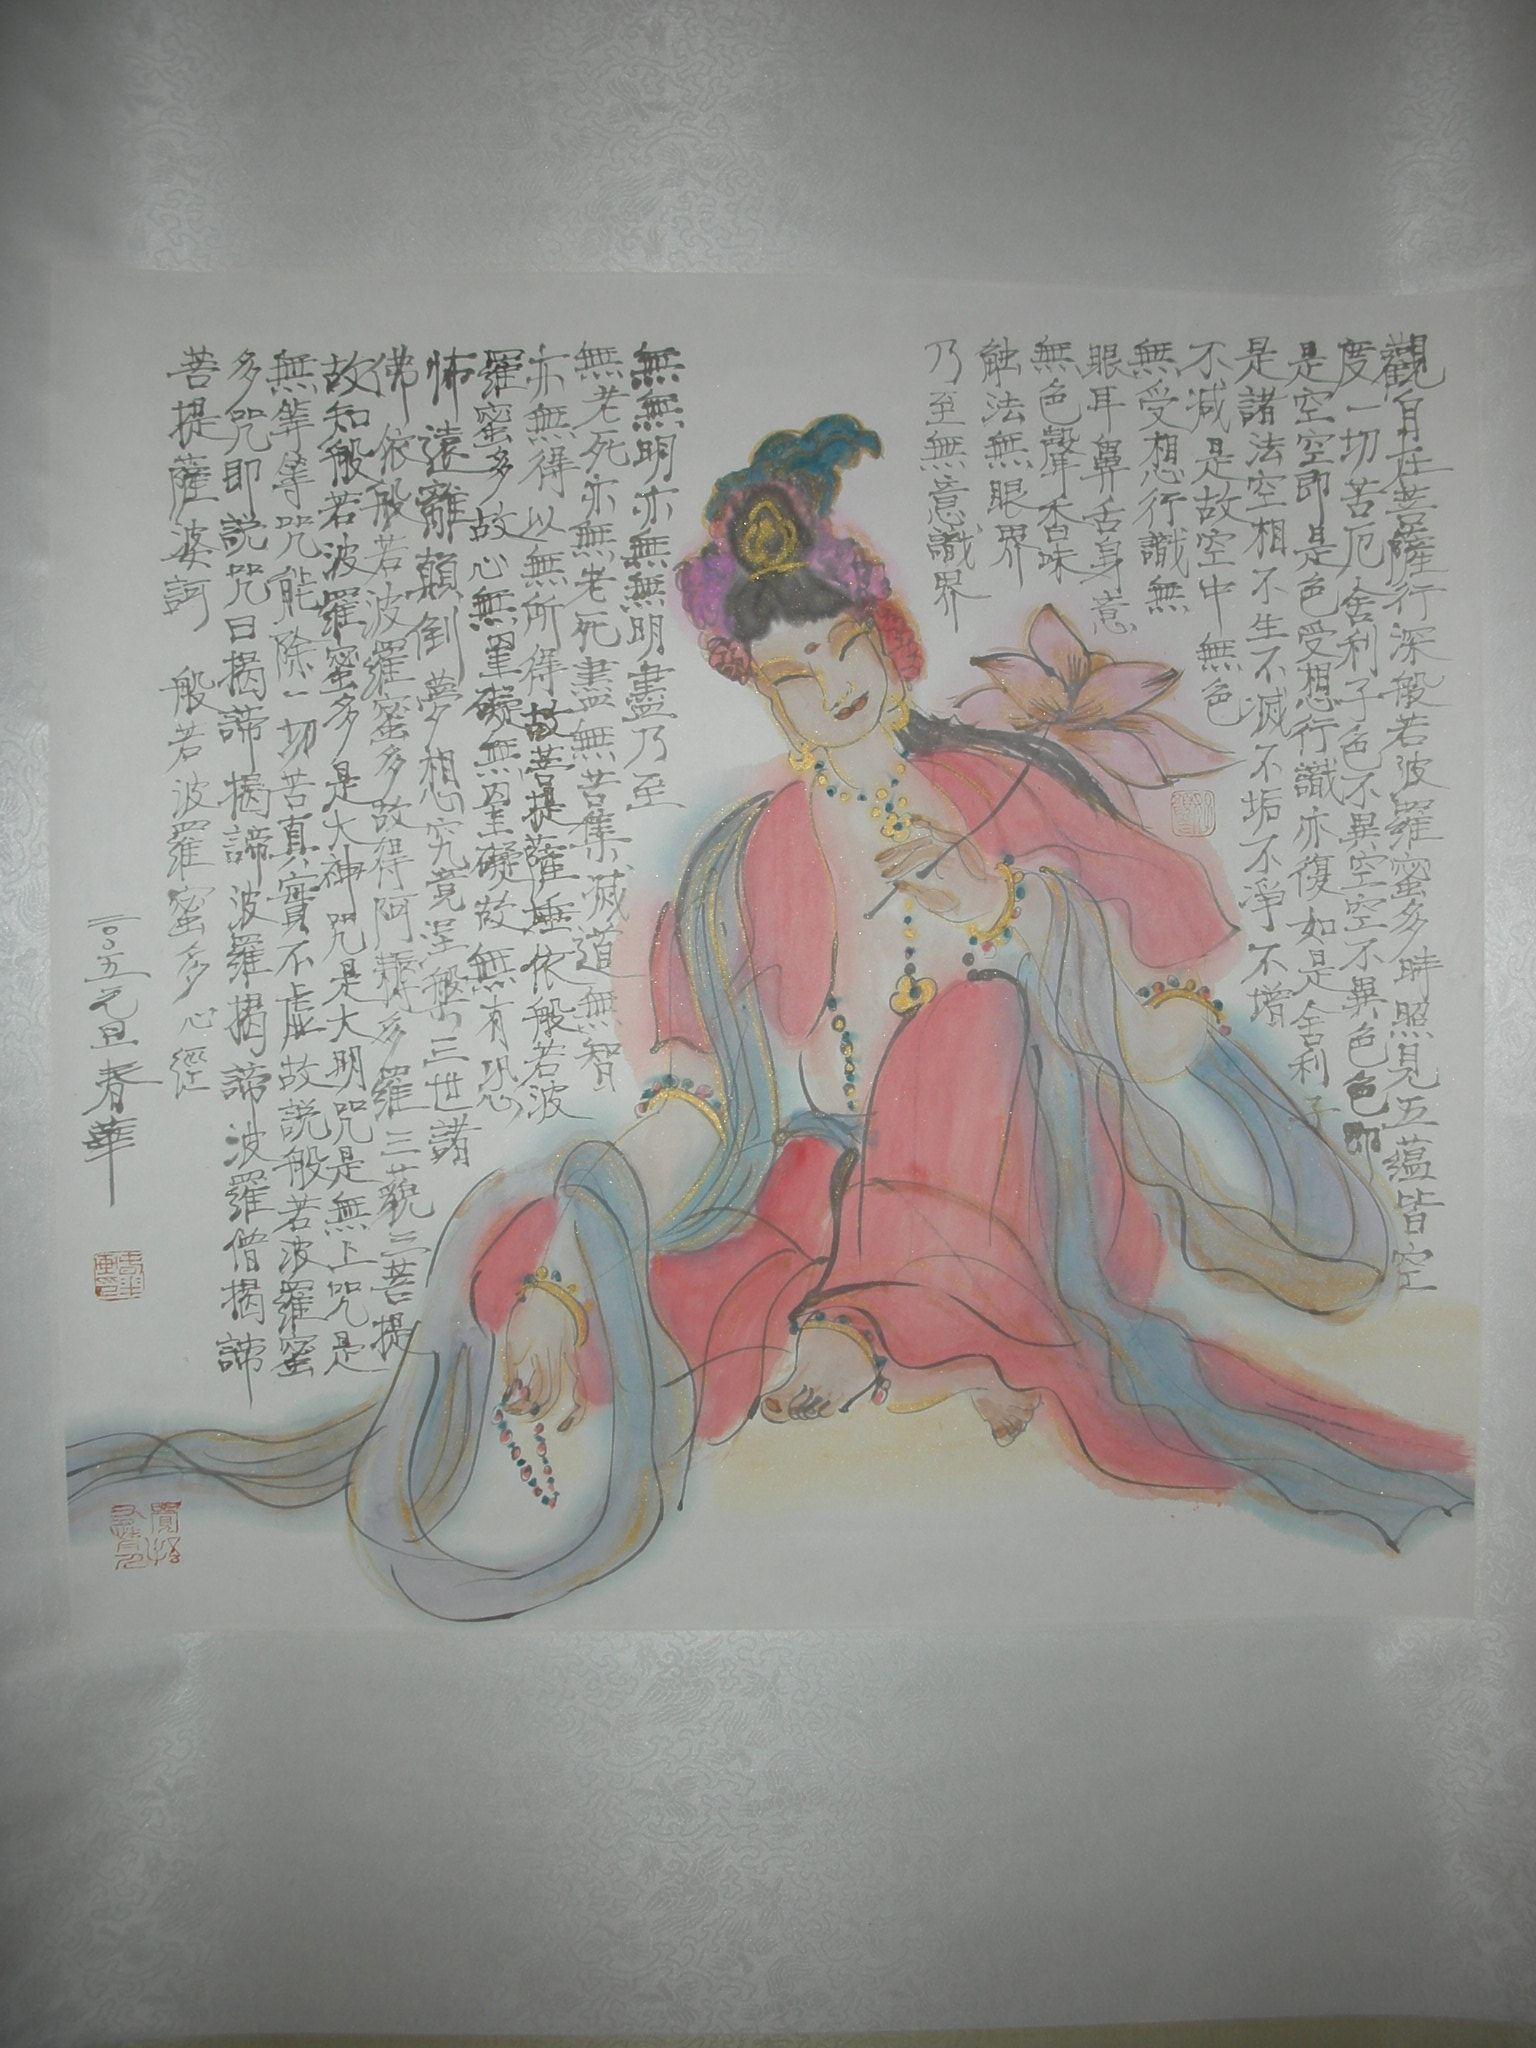 觀自在菩薩行深般若波羅蜜多時照見五蘊皆空
度一切苦厄舍利子色不異空空不異色色即
是空空即是色受想行識亦復如是舍利子
是諸法空相不生不滅不垢不淨不增
不減是故空中無色
無受想行識無
眼耳鼻舌身意
無色聲香味
触法無眼界
乃至無意識界
無無明亦無無明盡乃至
無老死亦無老死盡無苦集滅道無智
亦無得以無所得故菩提薩埵依般若波
羅蜜多故心無罣礙無罣礙故無有恐
怖遠離顛倒夢想究竟涅槃三世諸
佛依般若波羅蜜多故得阿耨多羅三藐三菩提
故知般若波羅蜜多是大神咒是大明咒是無上咒是
無等等咒能除一切苦真實不虛故説般若波羅蜜
多咒即説咒曰揭諦揭諦波羅揭諦波羅僧揭諦
菩提薩婆訶 般若波羅蜜多心經
二〇〇五元旦春華